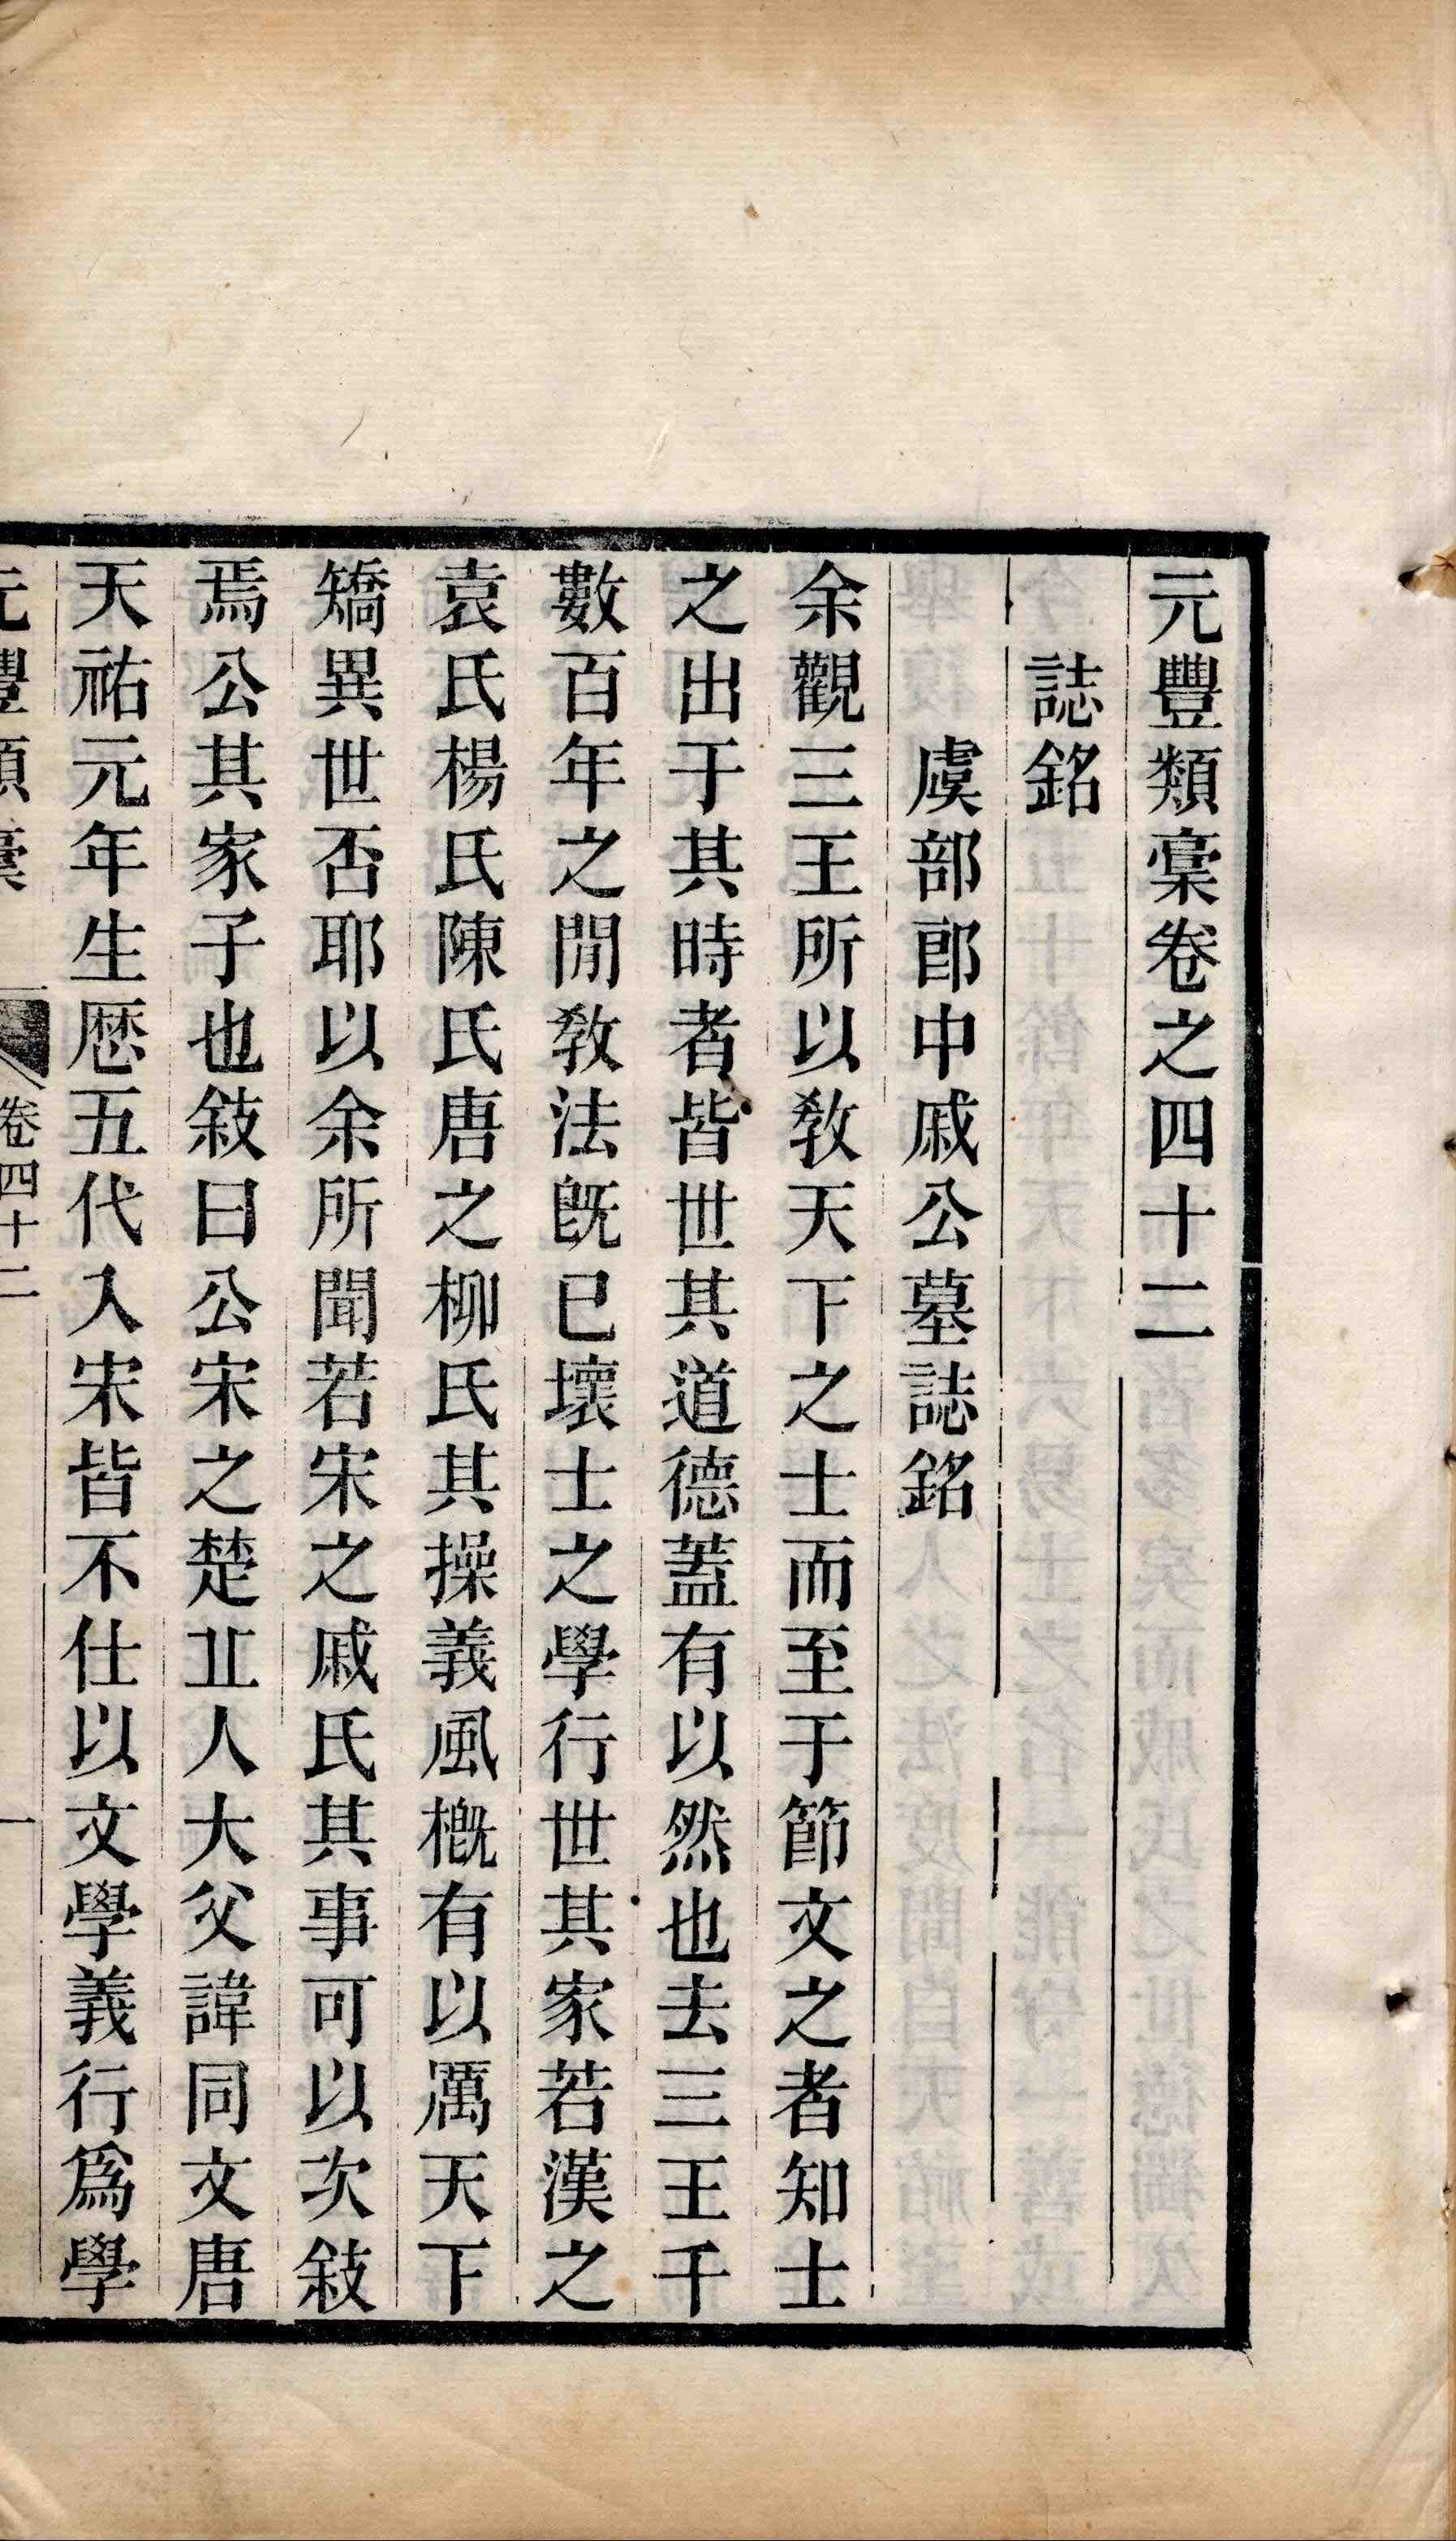 元豐類稾卷之四十二
誌銘
虞部郎中戚公墓誌銘
余觀三王所以敎天下之士而至于節文之者知士
之出于其時者皆世其道德蓋有以然也去三王千
數百年之閒敎法旣已壞士之學行世其家若漢之
袁氏楊氏陳氏唐之柳氏其操義風槪有以厲天下
矯異世否耶以余所聞若宋之戚氏其事可以次敍
焉公其家子也敍曰公宋之楚丠人大父諱同文唐
天祐元年生歷五代入宋皆不仕以文學義行爲學
元豐類稾 卷四十二 一